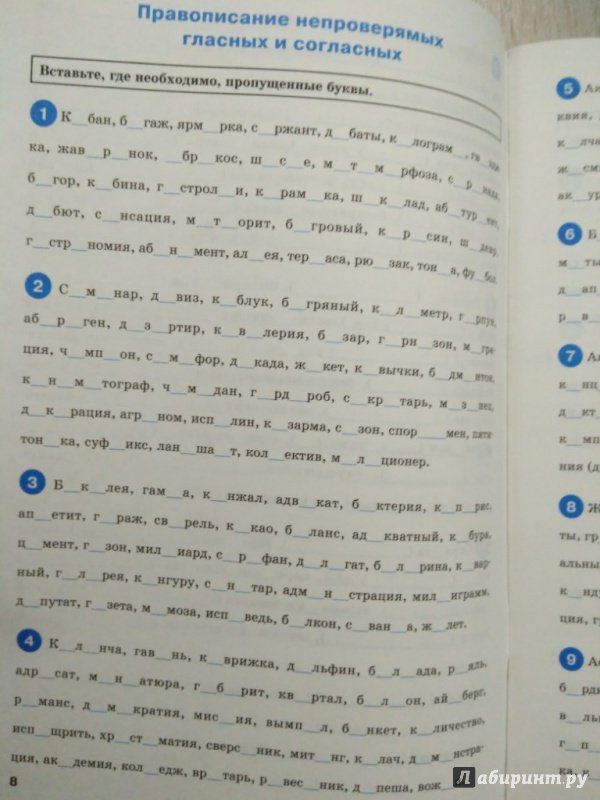 Правописание непроверямых
гласных и согласных
Вставьте, где необходимо, пропущенные буквы.
1 К__бан, б__гаж, ярм__рка, с__ржант, д__баты, к__лограм__, гв__зди
ка, жав__р__нок, __бр__кос, ш__с__е, м__т__м__рфоза, с__р__нада,
б__гор, к__бина, г__строл__и, к__рам__ка, ш__к__лад, аб__тур__ент,
д__бют, с__нсация, м__т__орит, б__гровый, к__р__син, ш__девр,
г__стр__номия, аб__н__мент, ал__ея, тер__аса, рю__зак, тон__а, фу__бол.
2 С__м__нар, д__виз, к__блук, б__гряный, к__л__метр, г__рпун,
аб__р__ген, д__з__ртир, к__в__лерия, б__зар, г__рн__зон, м__гра-
ция, ч__мп__он, с__м__фор, д__када, ж__кет, к__вычки, б__дм__нтон,
к__н__м__тограф, ч__м__дан, г__рд__роб, с__кр__тарь, м__з__нец,
д__к__рация, агр__ном, исп__лин, к__зарма, с__зон, спор____мен, пяти-
тон__ка, суф__икс, лан__ша__т, кол__ектив, м__л__ционер.
3 Б__к__лея, гам__а, к__нжал, адв__кат, б__ктерия, к__п__рис,
ап__етит, г__раж, св__рель, к__као, б__ланс, ад__кватный, к__бура,
ц__мент, г__зон, мил__иард, с__р__фан, д__л__гат, б__л__рина, к__вар-
ный, г__л__рея, к__нгуру, с__н__тар, адм__н__страция, мил__играмм,
д__путат, г__зета, м__моза, исп__ведь, б__лкон, с__ван__а, ж__лет.
4 К__л__нча, гав__нь, к__врижка, д__льфин, б__л__ада, р__яль,
адр__сат, м__н__атюра, г__б__рит, кв__ртал, б__л__он, ай__берг,
р__манс, д__м__кратия, мис__ия, вымп__л, б__нкет, к__личество,
исп__щрить, хр__ст__матия, сверс__ник, мит__нг, к__лач, д__м__нстра-
ция, ак__демия, кол__едж, вр__тарь, р__вес__ник, д__пеша, вож__
8
5 Ак
квия,
к__лча
ж__сми
ак__ур
6 Б
м__ты
д__ап
р__в__
7 Ак
к__нц
д__кт
к__мп
ния (д
8 Ж
ты, гр
альны
к__нду
ция, г
9 Ас
б__рдю
в__льн
г__п__
ка, к__
Лабиринт.ру